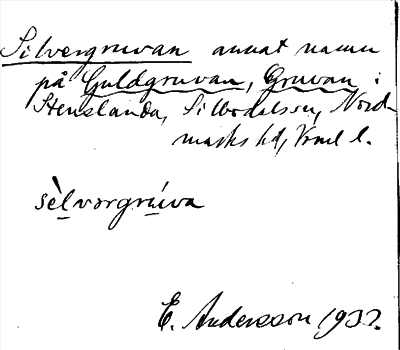 Silvergruvan annat namn
på Guldgruvan, Gruvan i
Stenslanda, Silbodalssn, Nord-
marks hd, Vrml l.
sèlvorgrúva
E. Andersson 1932.